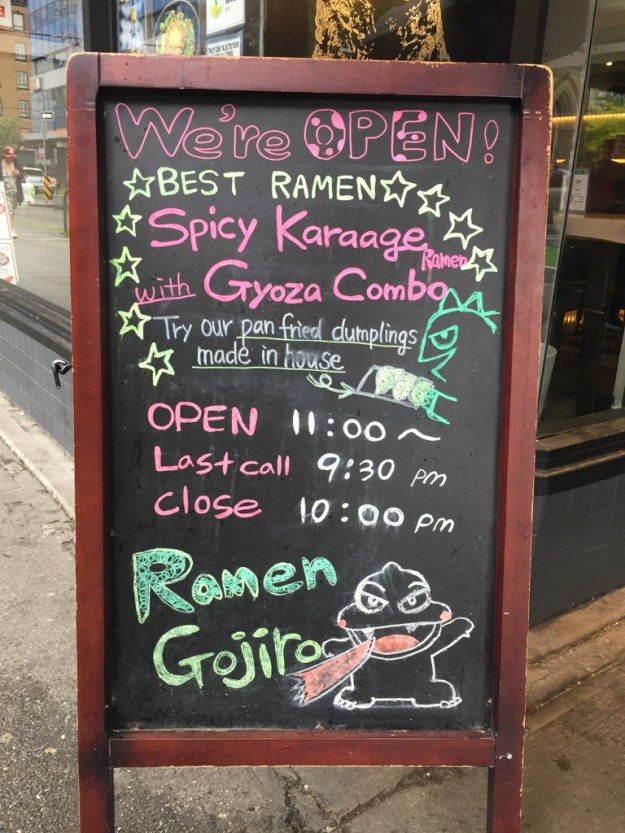 We're OPEN!
BEST RAMEN
Spicy Karaage Ramen
with Gyoza Combo
Try our pan fried dumplings
made in house
OPEN 11:00 ~
Last call 9:30 pm
Close 10:00 pm
Ramen
Gojiro